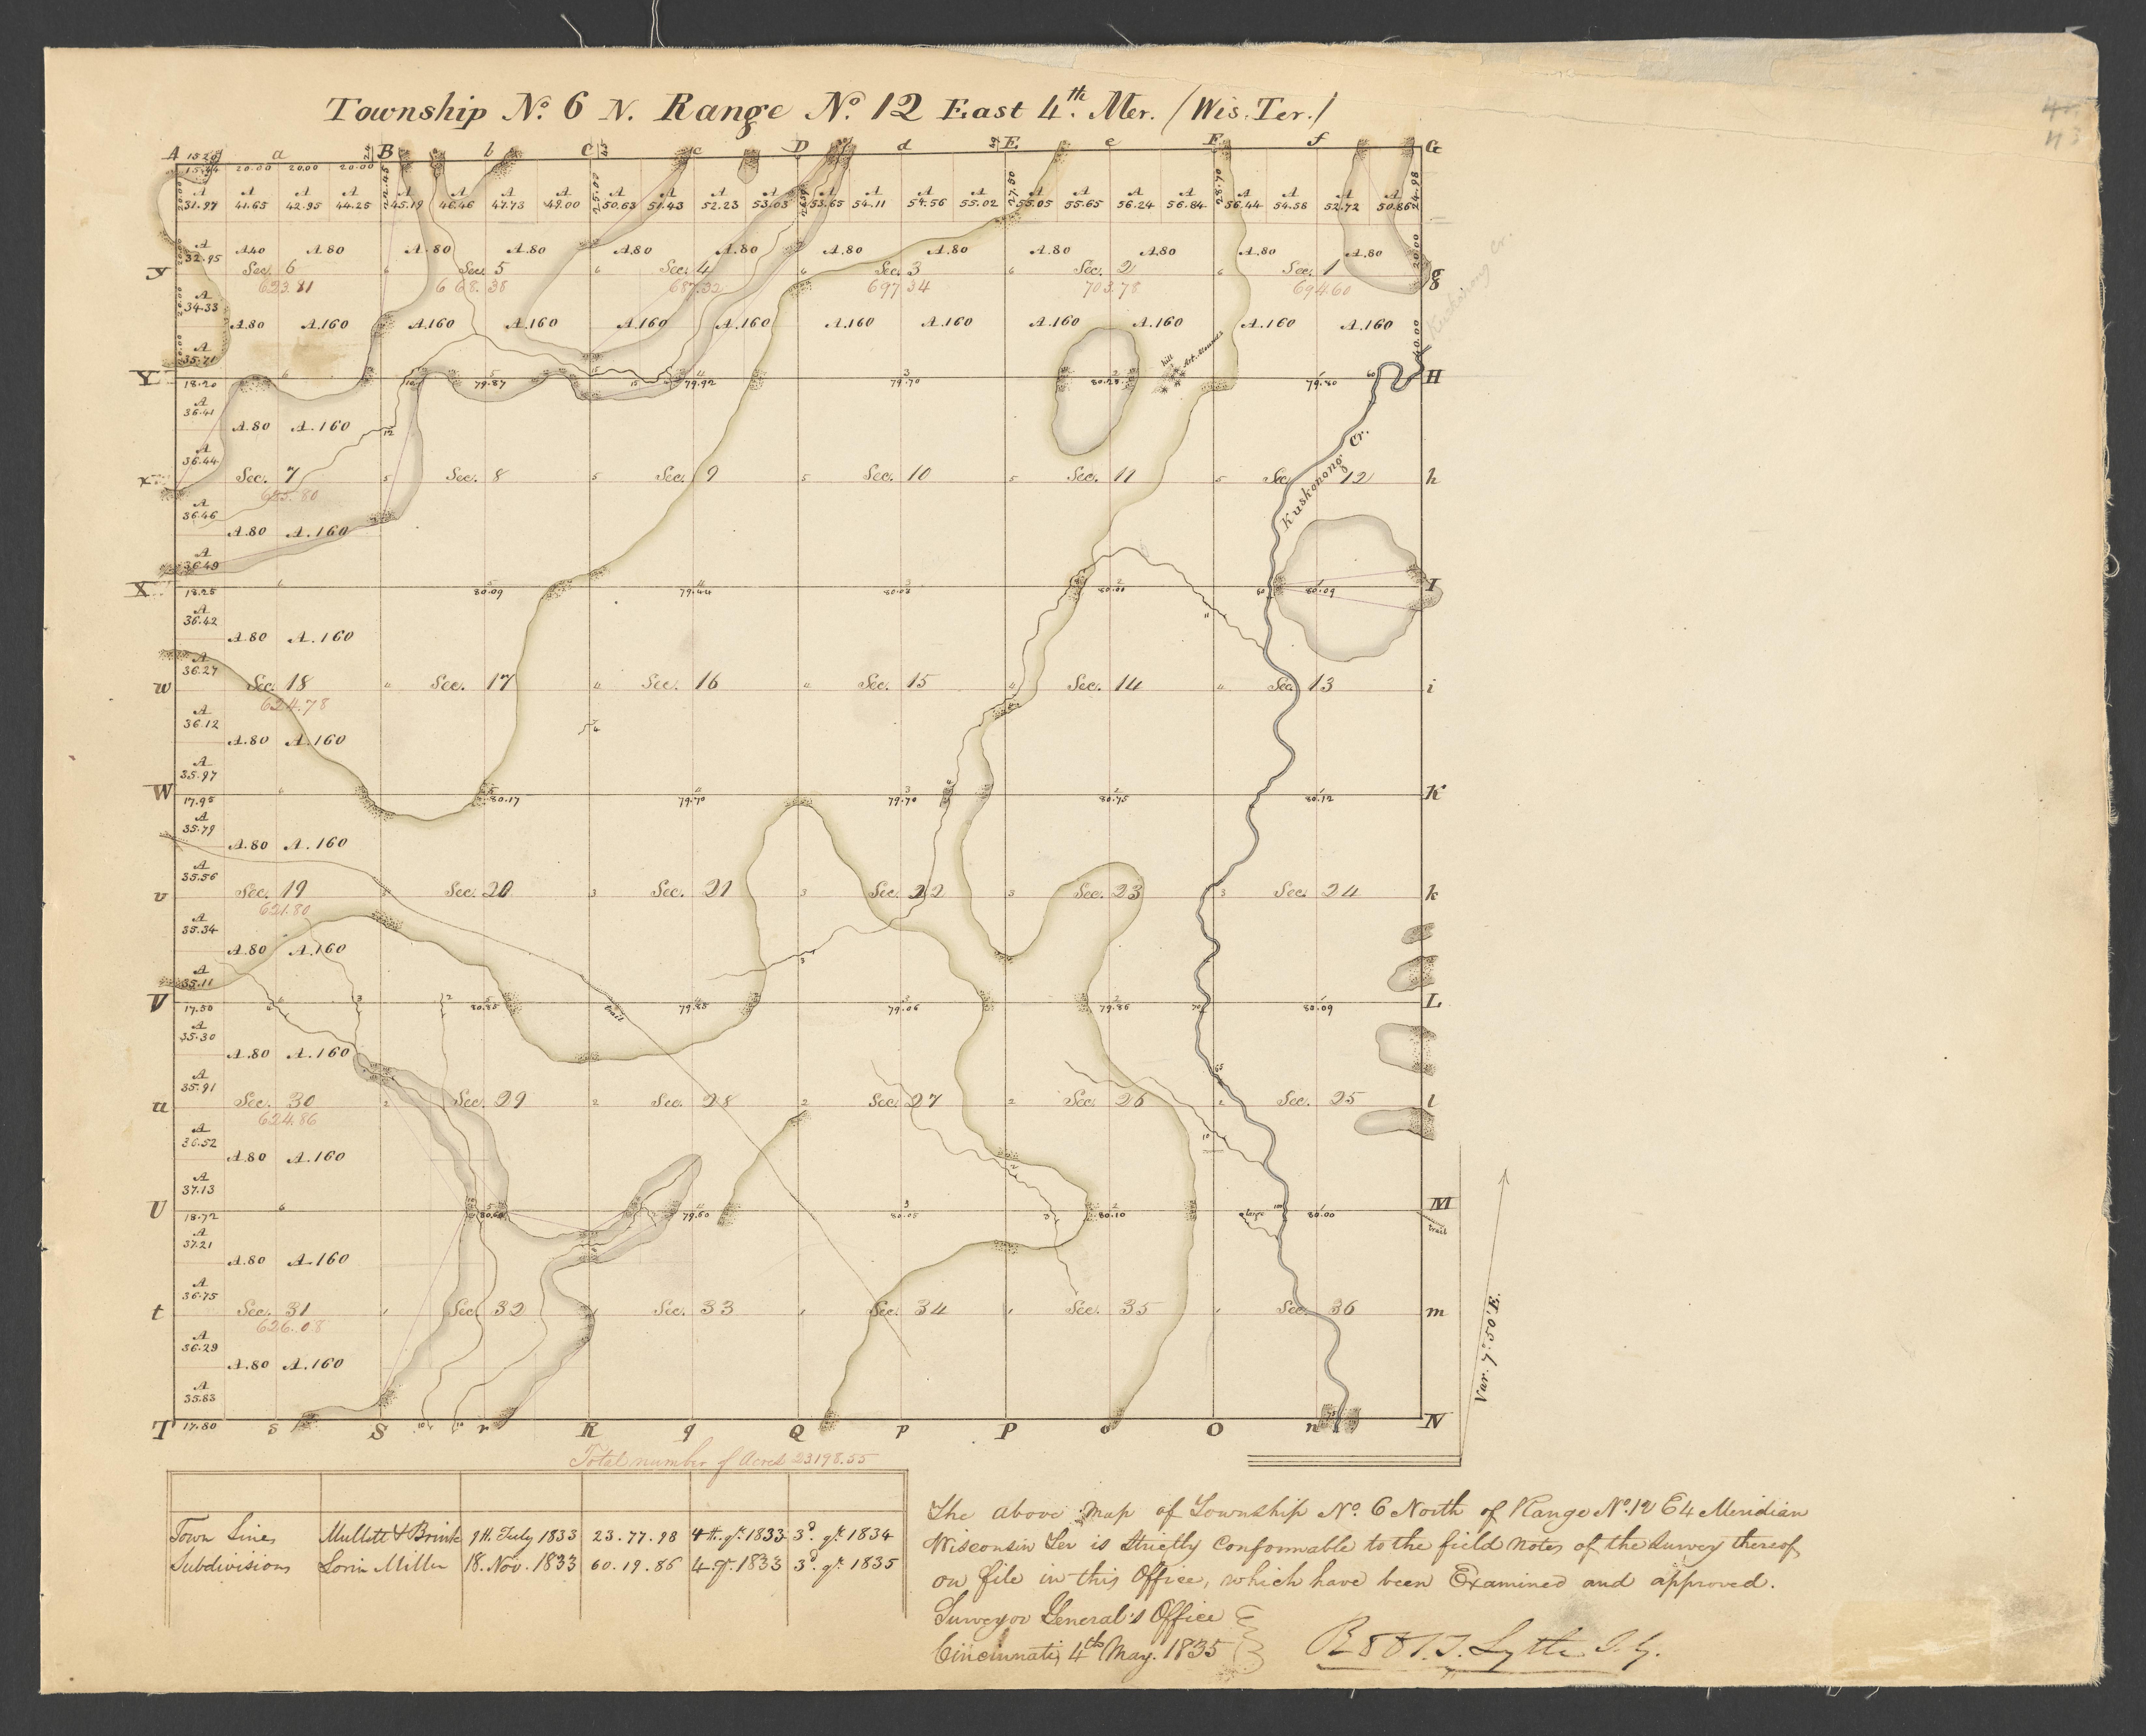 Township No. 6 N. Range No. 12 East 4th. Mer. (Wis. Ter.)
A a B b C c D d E e F f G
20.00 20.00 20.00
A A A A A A A A A A A A A A A A A A A A A A A A
31.97 41.65 42.95 44.25 45.19 46.46 47.73 49.00 50.63 51.43 52.23 53.03 53.65 54.11 54.56 55.02 55.05 55.65 56.24 56.84 56.44 54.58 52.72 50.86
A 32.95 A.40 A.80 A.80 A.80 A.80 A.80 A.80 A.80 A.80 A.80 A.80 A.80
y Sec. 6 Sec. 5 Sec. 4 Sec. 3 Sec. 2 Sec. 1 g
623.81 668.38 687.32 697.34 703.78 694.60
A 34.33 A.80 A.160 A.160 A.160 A.160 A.160 A.160 A.160 A.160 A.160 A.160 A.160
Kuskonong Cr.
A 35.71 hill Art. Mounds
Y 18.20 79.87 79.92 79.70 80.28 79.80 H
A 36.41 A.80 A.160
Kuskonong Cr.
A 36.44
x Sec. 7 Sec. 8 Sec. 9 Sec. 10 Sec. 11 Sec. 12 h
A 36.46 A.80 A.160
A 36.49
X 18.25 80.09 79.44 80.09 I
A 36.42 A.80 A.160
A 36.27
w Sec. 18 Sec. 17 Sec. 16 Sec. 15 Sec. 14 Sec. 13 i
624.78
A 36.12 A.80 A.160
A 35.97
W 17.95 80.17 79.70 79.70 80.75 80.12 K
A 35.79 A.80 A.160
A 35.56
v Sec. 19 Sec. 20 Sec. 21 Sec. 22 Sec. 23 Sec. 24 k
621.80
A 35.34 A.80 A.160
A 35.11
V 17.50 80.85 trail 79.85 79.06 79.86 80.09 L
A 35.30 A.80 A.160
A 35.91
u Sec. 30 Sec. 29 Sec. 28 Sec. 27 Sec. 26 Sec. 25 l
624.86
A 36.52 A.80 A.160
A 37.13
U 18.72 79.60 80.05 80.10 80.00 M
trail
A 37.21 A.80 A.160
A 36.75
t Sec. 31 Sec. 32 Sec. 33 Sec. 34 Sec. 35 Sec. 36 m
626.08
A 36.29 A.80 A.160
A 35.83
Var. 7°.50' E.
T 17.80 s S r R q Q p P o O n N
Total number of Acres 23198.55
Town Lines Mullett & Brink 9th. July 1833 23.77.98 4th. qr. 1833 3d. qr. 1834
Subdivisions Lorin Miller 18. Nov. 1833 60.19.86 4. qr. 1833 3d. qr. 1835
The above map of Township No. 6 North of Range No. 12 E 4 Meridian
Wisconsin Ter is Strictly Conformable to the field notes of the Survey thereof
on file in this Office, which have been Examined and approved.
Surveyor General's Office
Cincinnati, 4th May. 1835
Robt. T. Lytle S. G.